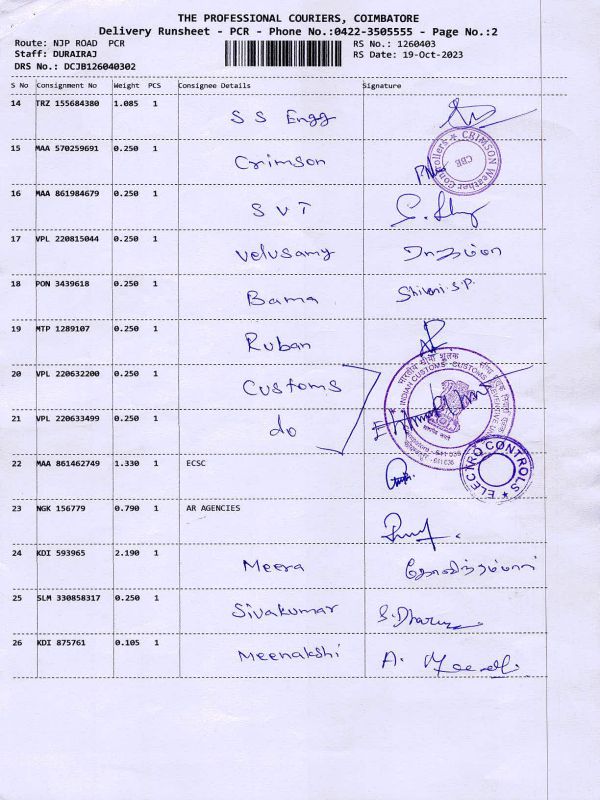 THE PROFESSIONAL COURIERS, COIMBATORE
Delivery Runsheet - PCR - Phone No.:0422-3505555 - Page No.:2
Route: NJP ROAD PCR RS No.: 1260403
Staff: DURAIRAJ RS Date: 19-Oct-2023
DRS No.: DCJB126040302
S No Consignment No Weight PCS Consignee Details Signature
14 TRZ 155684380 1.085 1 S S Engg
15 MAA 570259691 0.250 1 Crimson
CRIMSON Weather Controllers CBE
16 MAA 861984679 0.250 1 S V T
17 VPL 220815044 0.250 1 Velusamy
18 PON 3439618 0.250 1 Bama Shivani.S.P.
19 MTP 1289107 0.250 1 Ruban
20 VPL 220632200 0.250 1 Customs
21 VPL 220633499 0.250 1 do
भारतीय सीमा शुल्क
INDIAN CUSTOMS
22 MAA 861462749 1.330 1 ECSC
ELECTRO CONTROLS
23 NGK 156779 0.790 1 AR AGENCIES
24 KDI 593965 2.190 1 Meera
25 SLM 330858317 0.250 1 Sivakumar
26 KDI 875761 0.105 1 Meenakshi